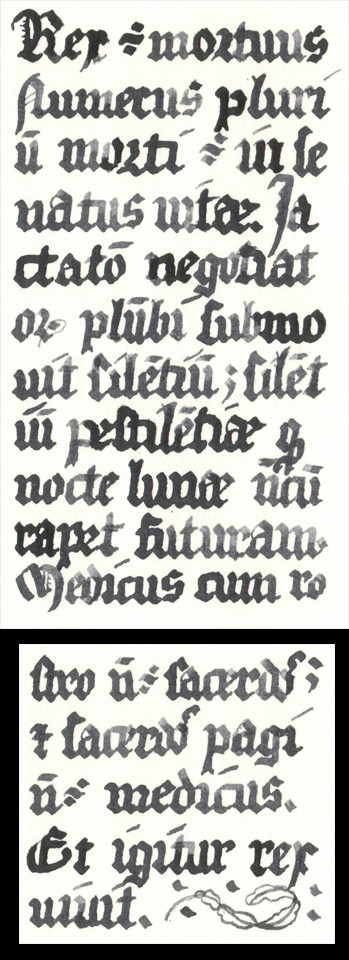 Rex ÷ mortuus
Numerus pluri
ū morti ÷ in se
natus uitæ. Ja
ctatō negotiat
or plūbi submo
uit silētiū; silēt
iū pestilētiæ q̄
nocte lunæ n̄cū
rapet futuram.
Medicus cum ro
stro n̄ ÷ sacerdos;
⁊ sacerdos pagi
n̄ ÷ medicus.
Et igitur rex
uiuit.